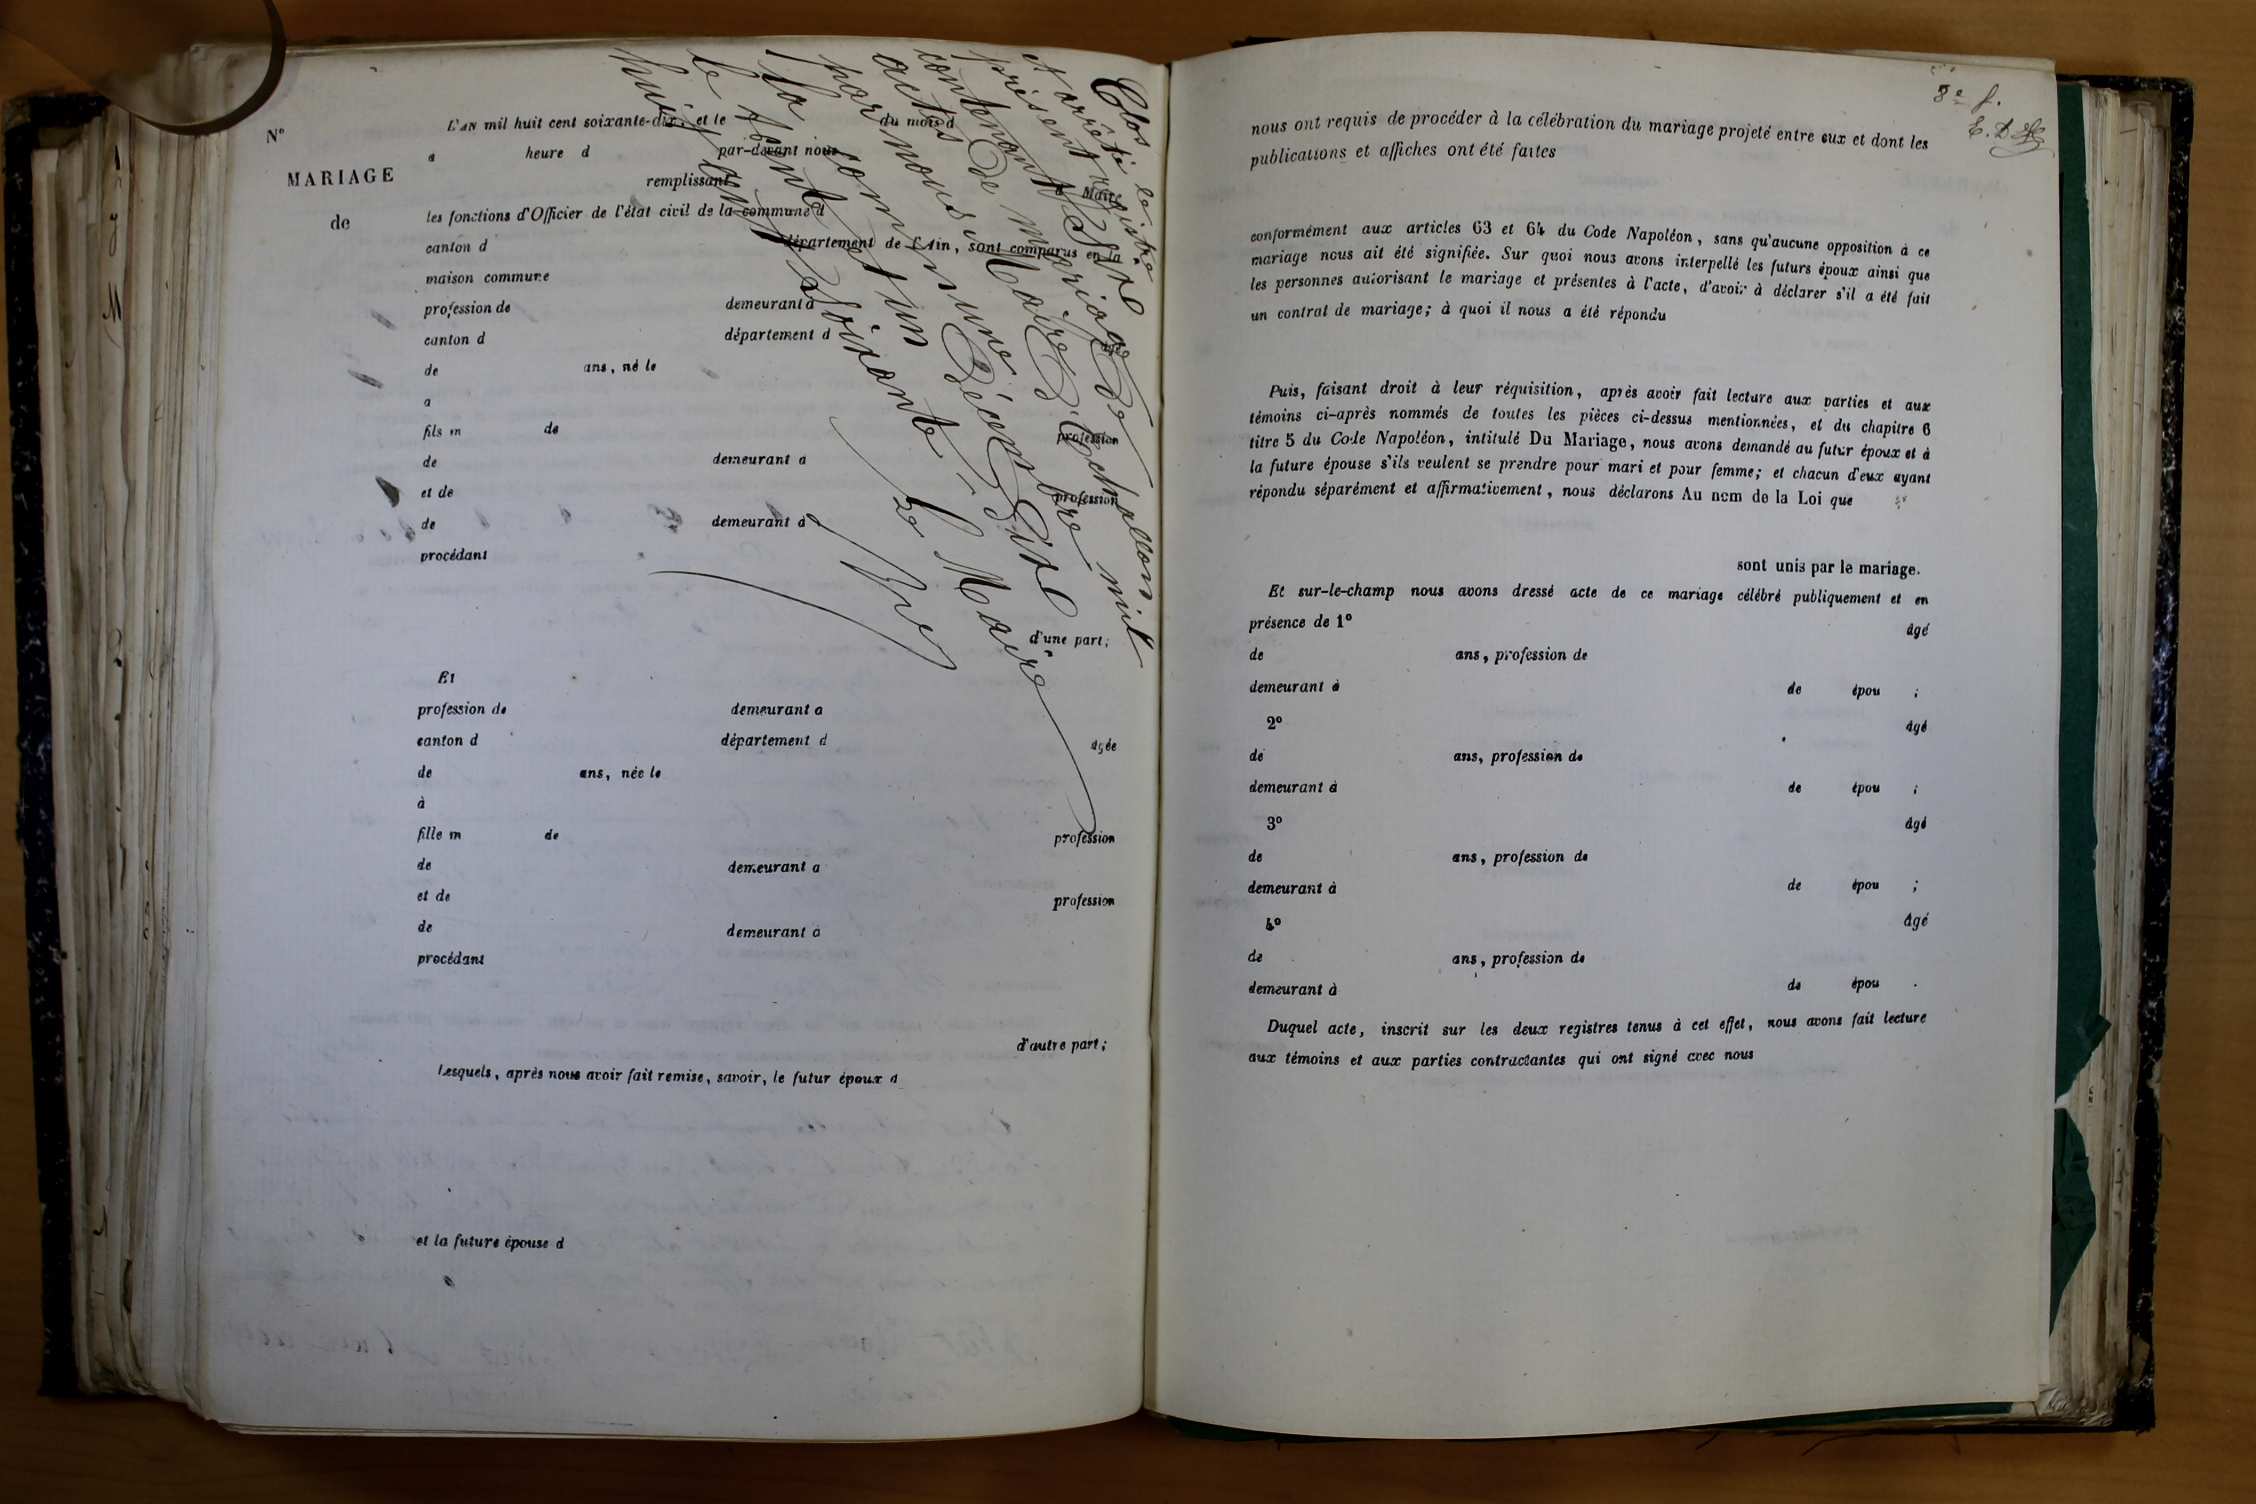 N°
MARIAGE
de
L'AN mil huit cent soixante-dix, et le du mois d
a heure d par-devant nous
Maire
remplissant
les fonctions d'Officier de l'état civil de la commune d
canton d département de l'Ain, sont comparus en la
maison commune
profession de demeurant à
canton d département d
de ans, né le
a
fils m de profession
de demeurant a
et de profession
de demeurant à
procédant
d'une part;
Et
profession de demeurant a
canton d département d agée
de ans, née le
à
fille m de profession
de demeurant a
et de profession
de demeurant à
procédant
d'autre part;
Lesquels, après nous avoir fait remise, savoir, le futur époux d
et la future épouse d
Clos
et arrêté le
présent registre
contenant
actes de mariage de
par nous Maire d'
la commune
le trente et un Décembre mil
huit cent soixante-dix
Le Maire
8e f.
nous ont requis de procéder à la célébration du mariage projeté entre eux et dont les
publications et affiches ont été faites
conformément aux articles 63 et 64 du Code Napoléon, sans qu'aucune opposition à ce
mariage nous ait été signifiée. Sur quoi nous avons interpellé les futurs époux ainsi que
les personnes autorisant le mariage et présentes à l'acte, d'avoir à déclarer s'il a été fait
un contrat de mariage; à quoi il nous a été répondu
Puis, faisant droit à leur réquisition, après avoir fait lecture aux parties et aux
témoins ci-après nommés de toutes les pièces ci-dessus mentionnées, et du chapitre 6
titre 5 du Code Napoléon, intitulé Du Mariage, nous avons demandé au futur époux et à
la future épouse s'ils veulent se prendre pour mari et pour femme; et chacun d'eux ayant
répondu séparément et affirmativement, nous déclarons Au nom de la Loi que
sont unis par le mariage.
Et sur-le-champ nous avons dressé acte de ce mariage célébré publiquement et en
présence de 1° âgé
de ans, profession de
demeurant à de épou ;
2° âgé
de ans, profession de
demeurant à de épou ;
3° âgé
de ans, profession de
demeurant à de épou ;
4° âgé
de ans, profession de
demeurant à de épou .
Duquel acte, inscrit sur les deux registres tenus à cet effet, nous avons fait lecture
aux témoins et aux parties contractantes qui ont signé avec nous